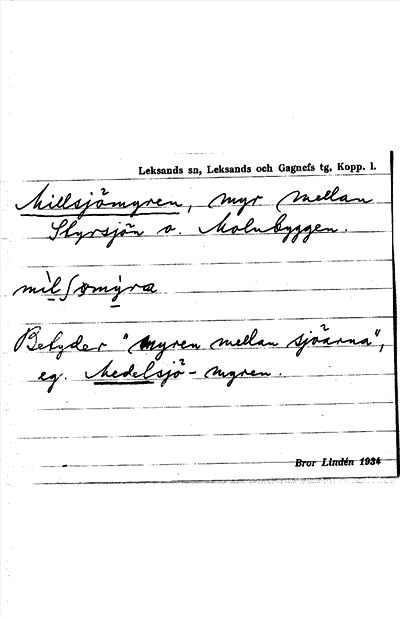 Leksands sn, Leksands och Gagnefs tg, Kopp. l.
Millsjömyren, myr mellan
Styrsjön o. Molnbyggen.
mìlʃømỳra
Betyder "myren mellan sjöarna",
eg. Medelsjö-myren.
Bror Lindén 1934